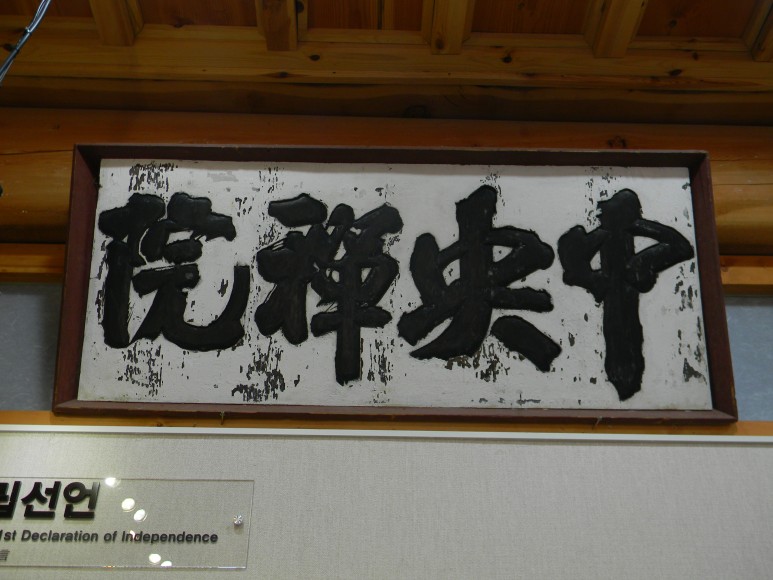 中央禪院
립선언
1st Declaration of Independence
言